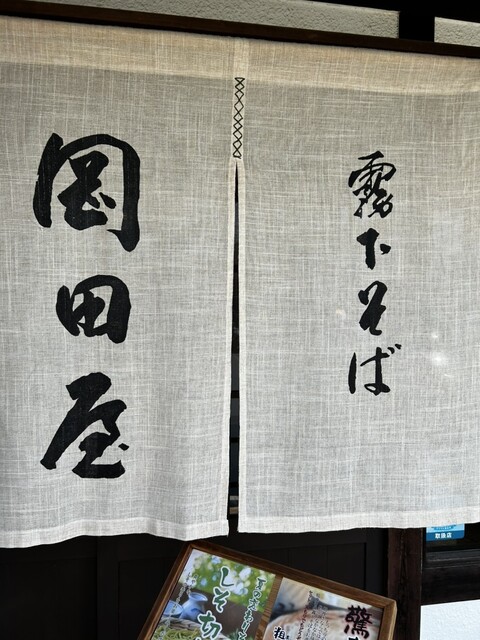 霧下そば
岡田屋
取扱店
しそ切
驚